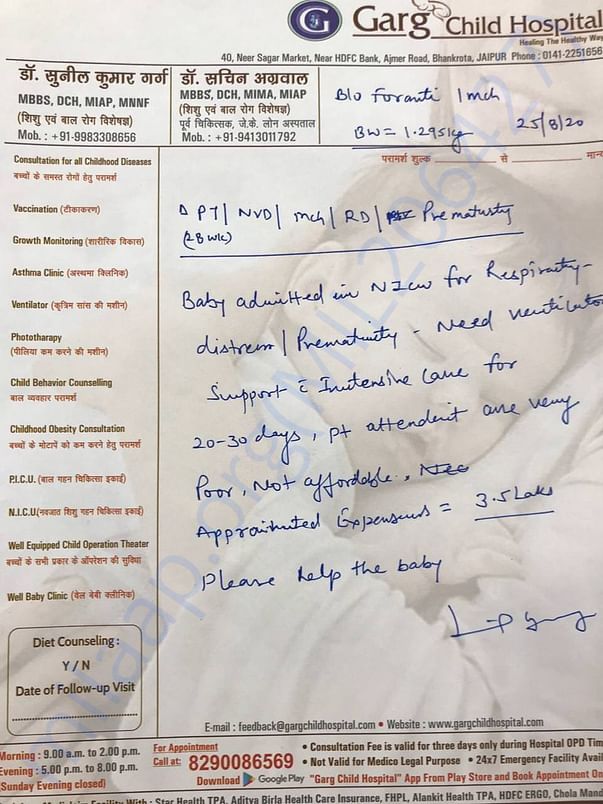 G Garg Child Hospital
Healing The Healthy Way
40, Neer Sagar Market, Near HDFC Bank, Ajmer Road, Bhankrota, JAIPUR Phone : 0141-2251656
डॉ. सुनील कुमार गर्ग
MBBS, DCH, MIAP, MNNF
(शिशु एवं बाल रोग विशेषज्ञ)
Mob. : +91-9983308656
डॉ. सचिन अग्रवाल
MBBS, DCH, MIMA, MIAP
(शिशु एवं बाल रोग विशेषज्ञ)
पूर्व चिकित्सक, जे.के. लोन अस्पताल
Mob. : +91-9413011792
B/o Foranti 1 mch
BW = 1.295kg
25/8/20
परामर्श शुल्क से मान्य
Consultation for all Childhood Diseases
बच्चों के समस्त रोगों हेतु परामर्श
Vaccination (टीकाकरण)
Growth Monitoring (शारीरिक विकास)
Asthma Clinic (अस्थमा क्लिनिक)
Ventilator (कृत्रिम सांस की मशीन)
Phototharapy
(पीलिया कम करने की मशीन)
Child Behavior Counselling
बाल व्यवहार परामर्श
Childhood Obesity Consultation
बच्चों के मोटापें को कम करने हेतु परामर्श
P.I.C.U. (बाल गहन चिकित्सा इकाई)
N.I.C.U.(नवजात शिशु गहन चिकित्सा इकाई)
Well Equipped Child Operation Theater
बच्चों के सभी प्रकार के ऑपरेशन की सुविधा
Well Baby Clinic (वेल बेबी क्लीनिक)
Diet Counseling :
Y / N
Date of Follow-up Visit
Δ PT | NVD | mch | RD | Prematurity
(28 wk)
Baby admitted in NICU for Respiratry
distress | Prematurity - Need ventilator
Support c̄ Intensive Care for
20-30 days, pt attendent are very
Poor, Not affordable.
Approximated Expensess = 3.5 Laks
Please help the baby
E-mail : feedback@gargchildhospital.com • Website : www.gargchildhospital.com
Morning : 9.00 a.m. to 2.00 p.m.
Evening : 5.00 p.m. to 8.00 p.m.
(Sunday Evening closed)
For Appointment
Call at: 8290086569
• Consultation Fee is valid for three days only during Hospital OPD Time
• Not Valid for Medico Legal Purpose • 24x7 Emergency Facility Avai
Download Google Play "Garg Child Hospital" App From Play Store and Book Appointment On
Facility With : Star Health TPA, Aditya Birla Health Care Insurance, FHPL, Alankit Health TPA, HDFC ERGO, Chola Mand